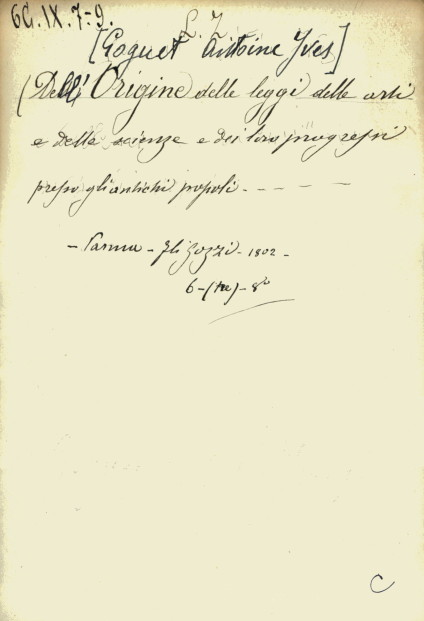 6G. IX. 7-9.
L. I
[Goguet Antoine Yves]
(Dell'Origine delle leggi delle arti
e delle scienze e dei loro progressi
presso gli antichi popoli - - - -
- Parma - Gozzi - 1802 -
6 - (tre) - 8º
C